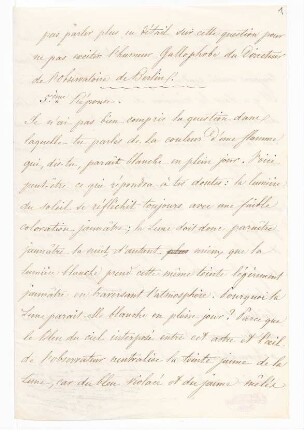 pas parler plus en détail sur cette question pour
ne pas exciter l'humeur Gallophobe du Directeur
de l'Observatoire de Berlin.
5ème Réponse.
Je n'ai pas bien compris la question dans
laquelle tu parles de la couleur d'une flamme
qui, dis-tu, paraît blanche en plein jour. Voici
peut-être ce qui répondra à tes doutes: la lumière
du soleil se réfléchit toujours avec une faible
coloration jaunâtre; la Lune doit donc paraître
jaunâtre la nuit, d'autant mieux que la
lumière blanche prend cette même teinte légèrement
jaunâtre en traversant l'atmosphère. Pourquoi la
Lune paraît-elle blanche en plein jour? Parce que
le bleu du ciel interposé entre cet astre et l'œil
de l'observateur neutralise la teinte jaune de la
Lune, car du bleu violacé et du jaune mêlés